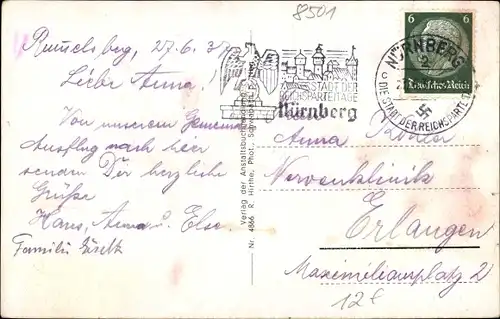 8501
Rummelsberg, 27.6.37
Liebe Anna!
Von unserem Gemeinde
Ausflug nach hier
senden Dir herzliche
Grüße
Hans, Anna u. Else.
Familie
Verlag der Anstaltsbuchhandlung
Nr. 4866 R. Hirthe, Phot.,
STADT DER
REICHSPARTEITAGE
Nürnberg
NÜRNBERG
2
DIE STADT DER REICHSPARTEITAGE
6 6
Deutsches Reich
Anna
Nervenklinik
Erlangen
Maximiliansplatz 2
12